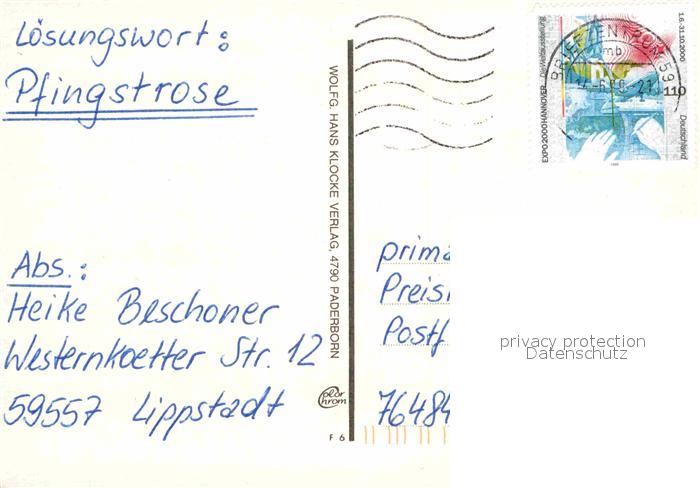 Lösungswort:
Pfingstrose
Abs.:
Heike Beschoner
Westernkoetter Str. 12
59557 Lippstadt
WOLFG. HANS KLOCKE VERLAG, 4790 PADERBORN
F 6
prima
Preis
Postf
76484
EXPO 2000 HANNOVER Die Weltausstellung
1.6.-31.10.2000
110
Deutschland
BRIEFZENTRUM 59
mb
privacy protection
Datenschutz